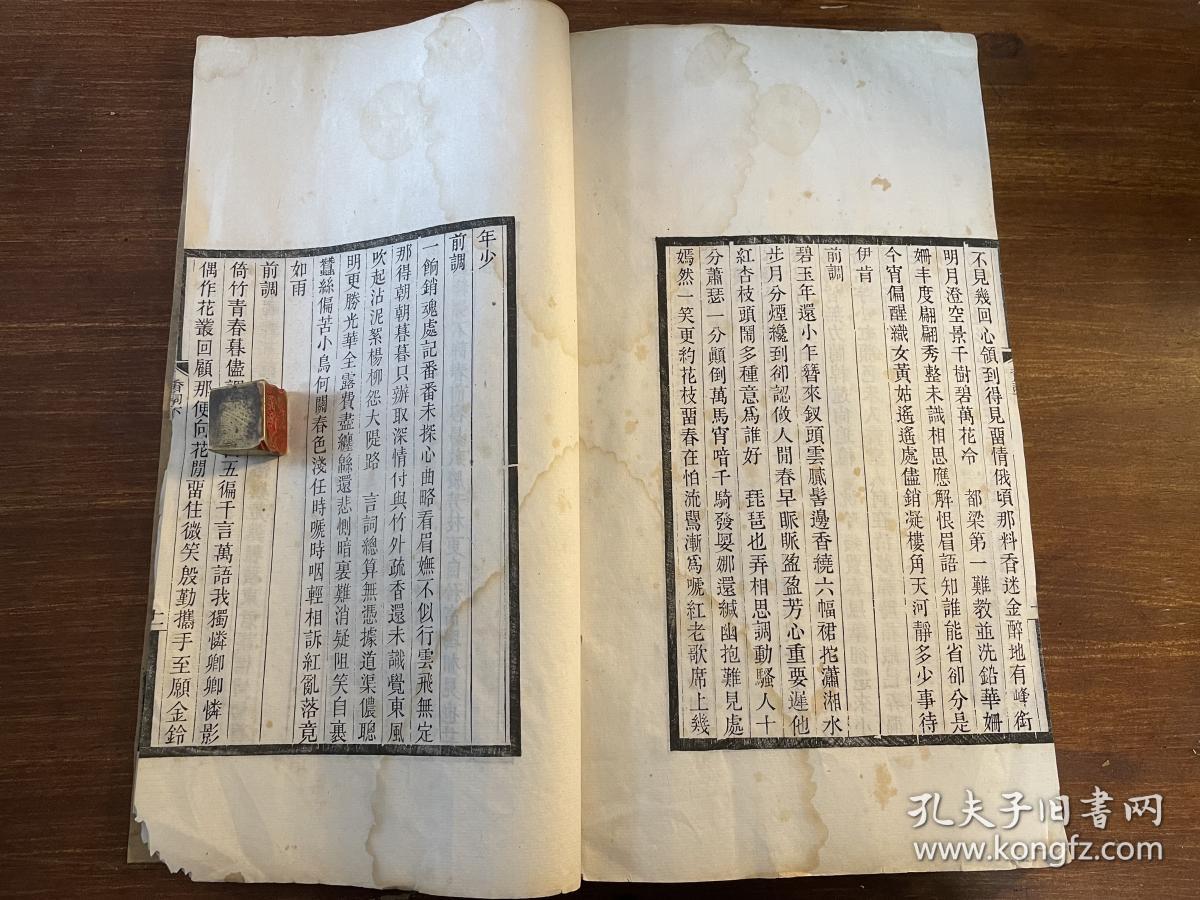 不見幾回心領到得見畱情俄頃那料香迷金醉地有峰銜
明月澄空景千樹碧萬花冷　都梁第一難教並洗鉛華姍
姍丰度翩翩秀整未識相思應解恨眉語知誰能省卻分是
今宵偏醒織女黃姑遙遙處儘銷凝樓角天河靜多少事待
伊肯
前調
碧玉年還小乍簪來釵頭雲膩髻邊香繞六幅裙拕瀟湘水
步月分煙纔到卻認做人閒春早脈脈盈盈芳心重要遲他
紅杏枝頭鬧多種意爲誰好　琵琶也弄相思調動騷人十
分蕭瑟一分顚倒萬馬宵喑千騎發娿娜還緘幽抱難見處
嫣然一笑更約花枝畱春在怕流鸎漸爲嗁紅老歌席上幾
年少
前調
一餉銷魂處記番番未探心曲略看眉嫵不似行雲飛無定
那得朝朝暮暮只辦取深情付與竹外疏香還未識覺東風
吹起沾泥絮楊柳怨大隄路　言詞總算無憑據道渠儂聰
明更勝光華全露費盡纏緜還悲惻暗裏難消疑阻笑自裹
蠶絲偏苦小鳥何關春色淺任時嗁時咽輕相訴紅亂落竟
如雨
前調
倚竹青春暮儘
五徧千言萬語我獨憐卿卿憐影
偶作花叢回顧那便向花閒畱住微笑殷勤攜手至願金鈴
二
孔夫子旧書网
www.kongfz.com